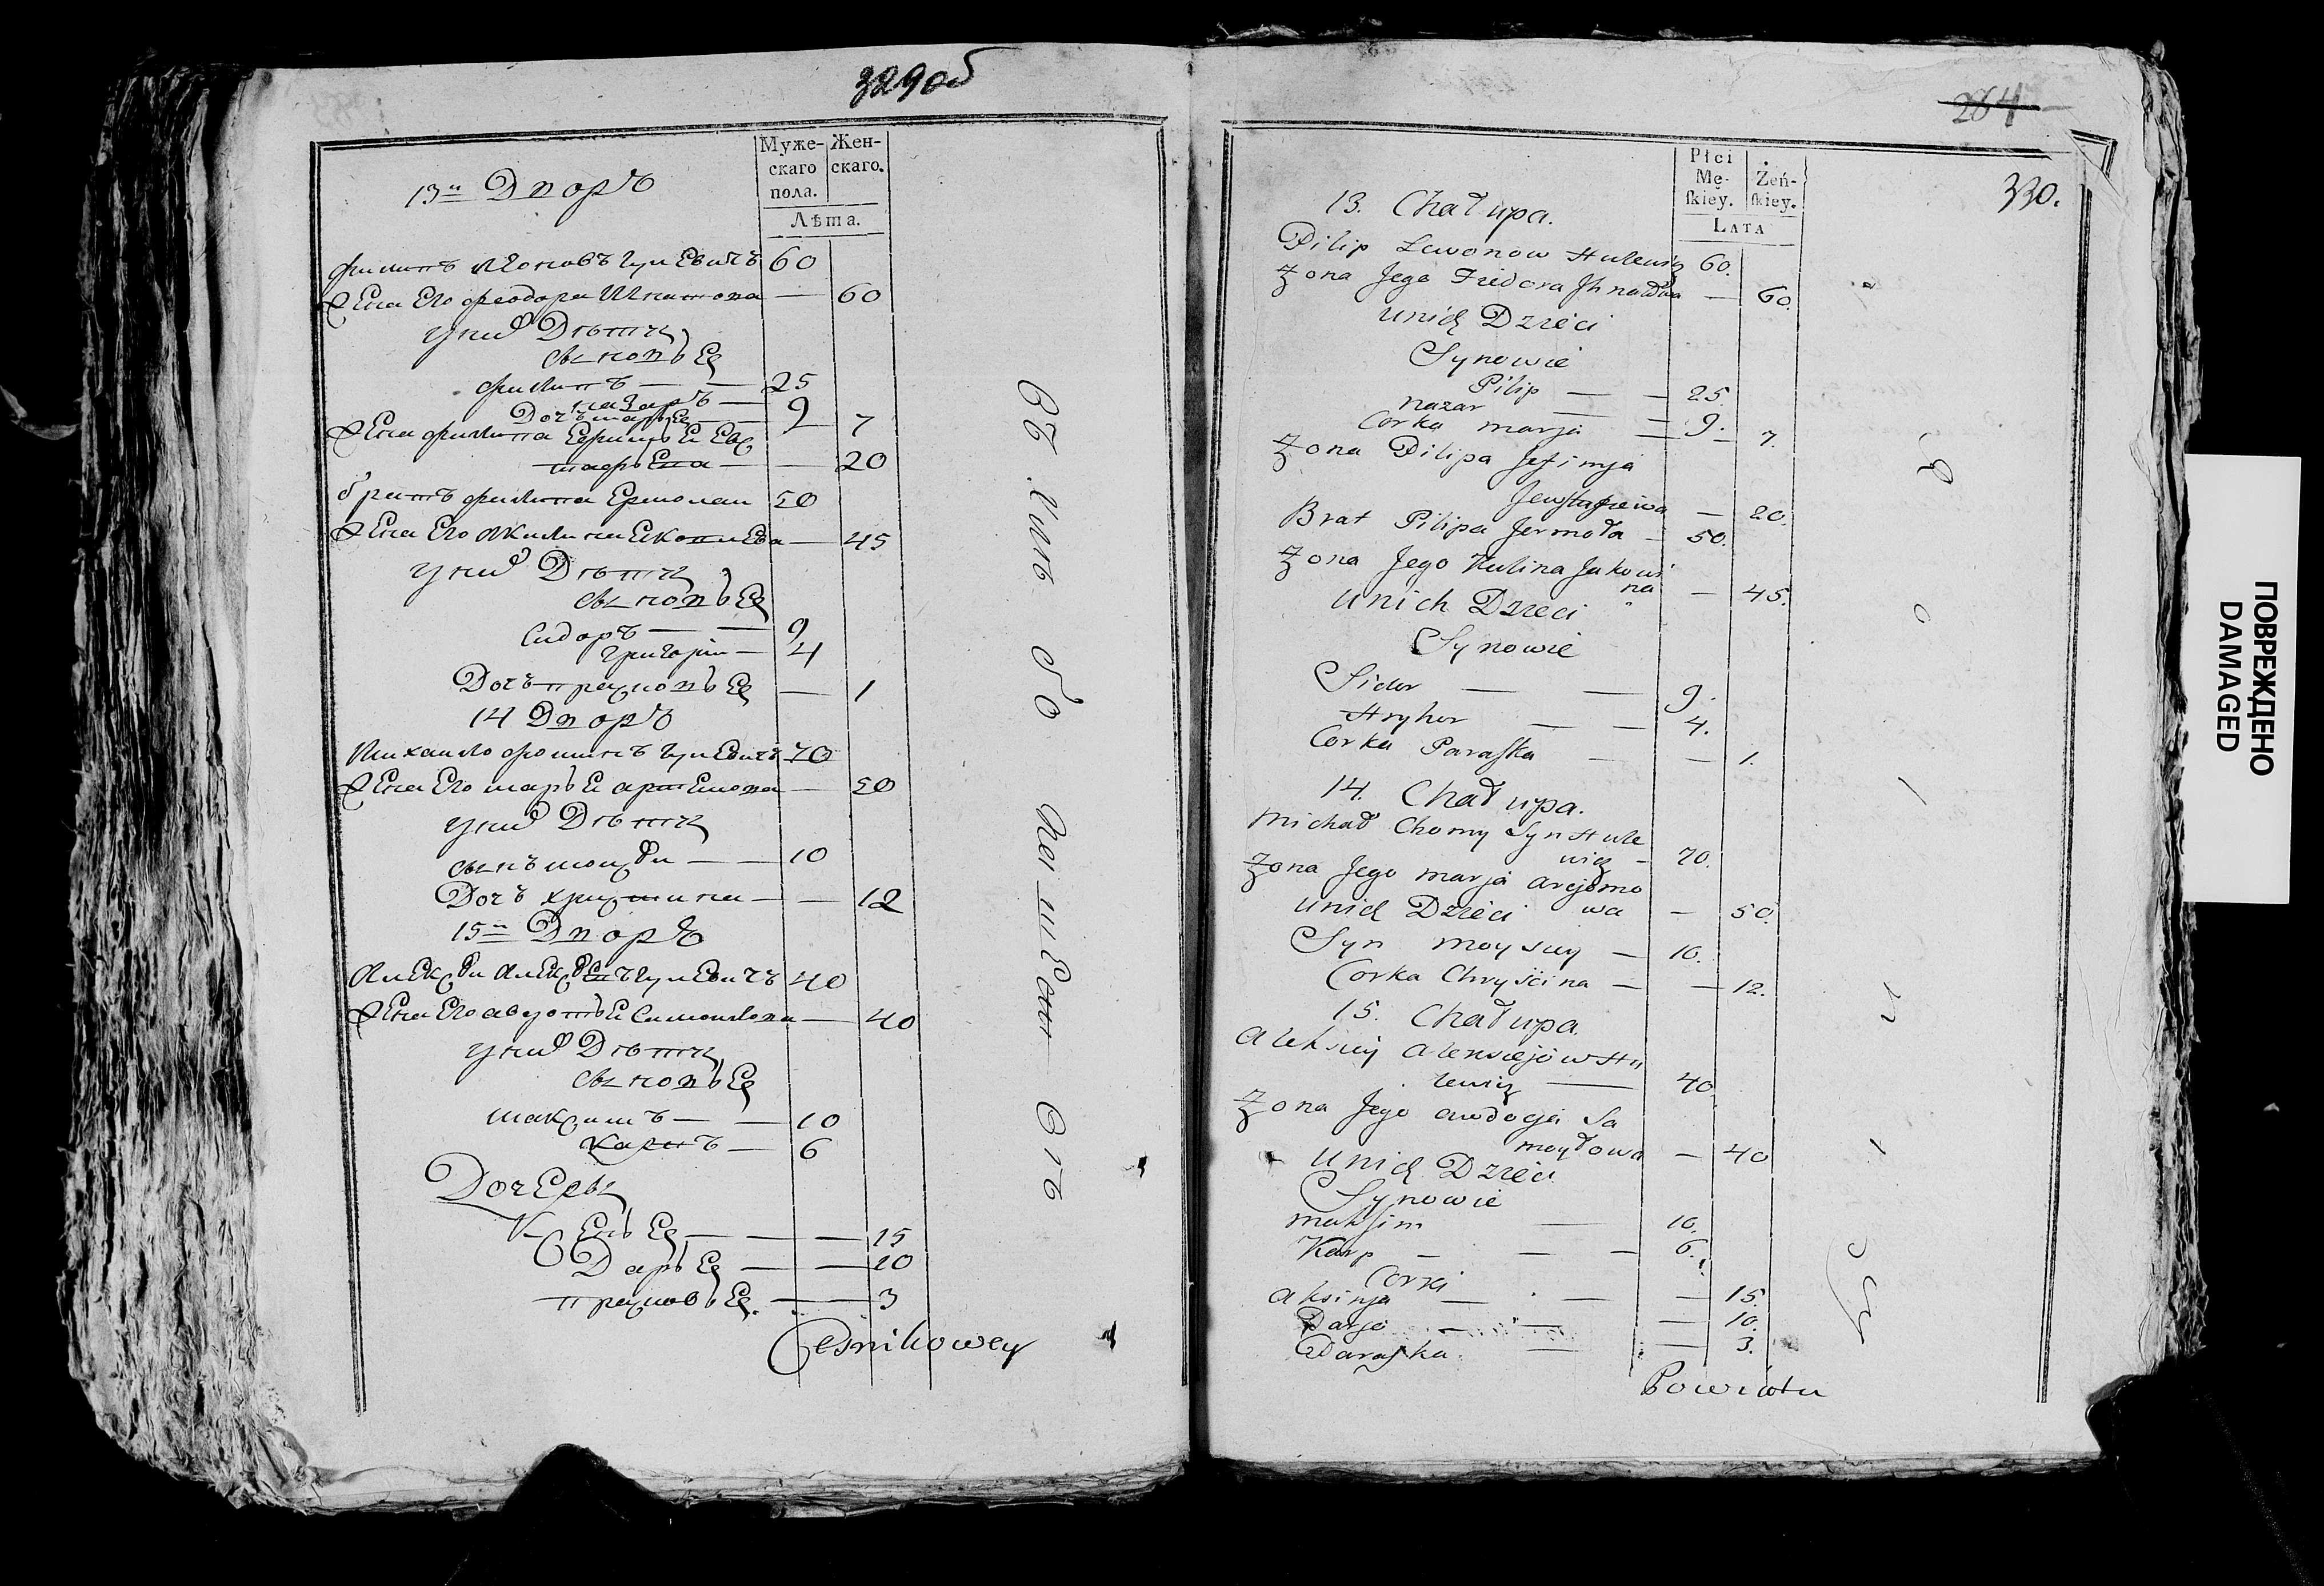 329об
Муже-
скаго
пола.
Жен-
скаго.
Лѣта.
13й Дворъ
Филипъ Леоновъ Гулевичъ 60
Жена Его Феодора Игнатова — 60
У них Дѣти
Сыновья
Филипъ — — 25
Назаръ — 9
Дочь Марья — 7
Жена Филипа Ефимья Ев
стафьева — — 20
братъ Филипа Ермолай 50
Жена Его Акилина Яковлева — 45
У них Дѣти
Сыновья
Сидоръ — — 9
Григорій — 4
Дочь Прасковья — 1
14 Дворъ
Михайло Фоминъ Гулевичъ 70
Жена Его Марья Артемова — 50
У них Дѣти
Сынъ Моисѣй — — 10
Дочь Христина — — 12
15й Дворъ
Алексѣй Алексѣевъ Гулевичъ 40
Жена Его Авдотья Самойлова — 40
У них Дѣти
Сыновья
Максимъ — — 10
Карпъ — 6
Дочери
Ксенья — — — 15
Дарья — — 10
Прасковья — 3
Cesnikowey
284
330.
Płci
Mę-
skiey.
Żeń-
skiey.
Lata
13. Chałupa.
Pilip Lewonow Hulewicz 60.
Zona Jego Fiedora Ihnatowa — 60.
unich Dzieci
Synowie
Pilip — — 25.
nazar — — 9.
Corka marja — — 7.
Zona Pilipa Jefimja
Jewstafiewa — 20.
Brat Pilipa Jermoła — 50.
Zona Jego Kulina Jakowl
na — 45.
unich Dzieci
Synowie
Sidor — — 9.
Hryhor — — 4.
Corka Paraska — — 1.
14. Chałupa.
michał Chomy Syn Hule
wicz — 70.
Zona Jego marja Arcjomo
wa — 50.
unich Dzieci
Syn moysiey — 10.
Corka Chryścina — — 12.
15. Chałupa.
Aleksiey Alexiejów Hu
lewicz — 40.
Zona Jego Awdocja Sa
moyłowa — 40
unich Dzieci
Synowie
maksim — 10.
Karp — — — 6.
Corki
Aksinja — — — 15.
Darja — — — 10.
Paraska — — 3.
Powiatu
ПОВРЕЖДЕНО
DAMAGED